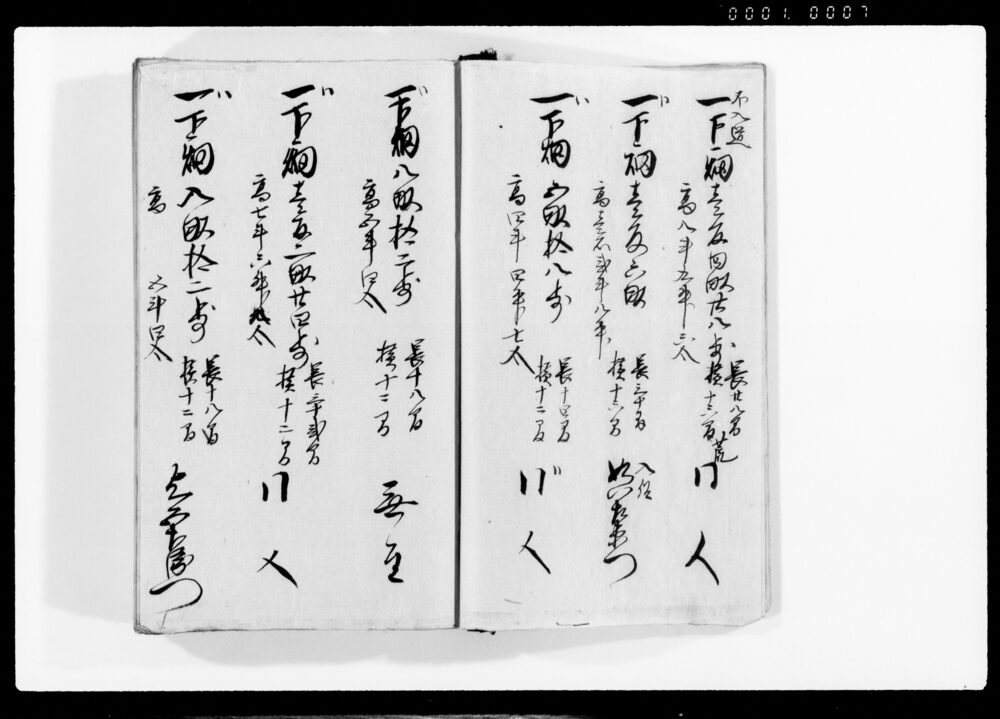 0001. 0007
不入
一下畑壱反四畝廿八歩
長廿八間
横十六間
荒
同人
高八斗五升
一下畑壱反六畝
長三十間
横十六間
左衛門
高壱石弐斗八升
一下畑五畝拾八歩
長十四間
横十二間
同人
高四斗四升七合
一下畑八畝拾二歩
長十八間
横十二間
無主
高五斗四合
一下畑壱反二畝廿四歩
長三十弐間
横十二間
同人
高七斗六升八合
一下畑八畝拾二歩
長十八間
横十二間
右衛門
高 五斗四合